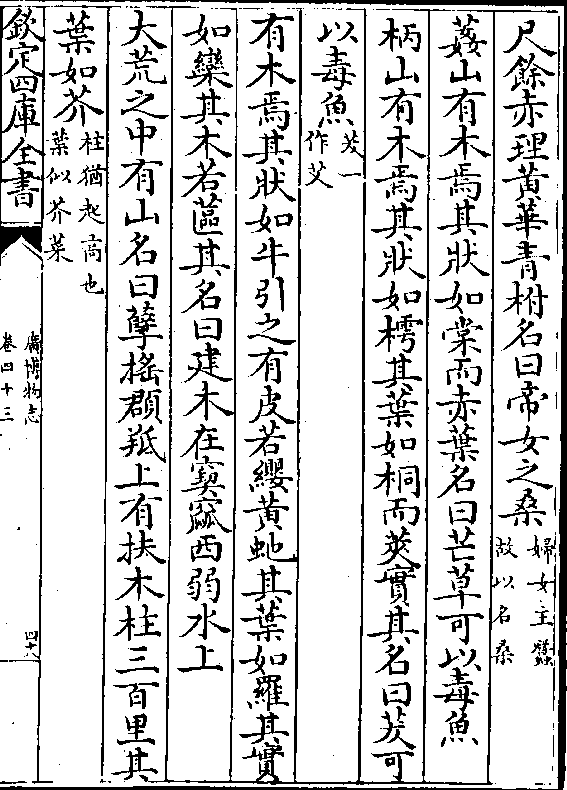 尺餘赤理黃華青柎名曰帝女之桑婦女主蠶故以名桑
葌山有木焉其狀如棠而赤葉名曰芒草可以毒魚
柄山有木焉其狀如樗其葉如桐而莢實其名曰茇可
以毒魚茇一作艾
有木焉其狀如牛引之有皮若纓黃虵其葉如羅其實
如欒其木若蓲其名曰建木在窫窳西弱水上
大荒之中有山名曰孽搖頵羝上有扶木柱三百里其
葉如芥柱猶起高也葉似芥菜
欽定四庫全書
廣博物志
卷四十三
四十八